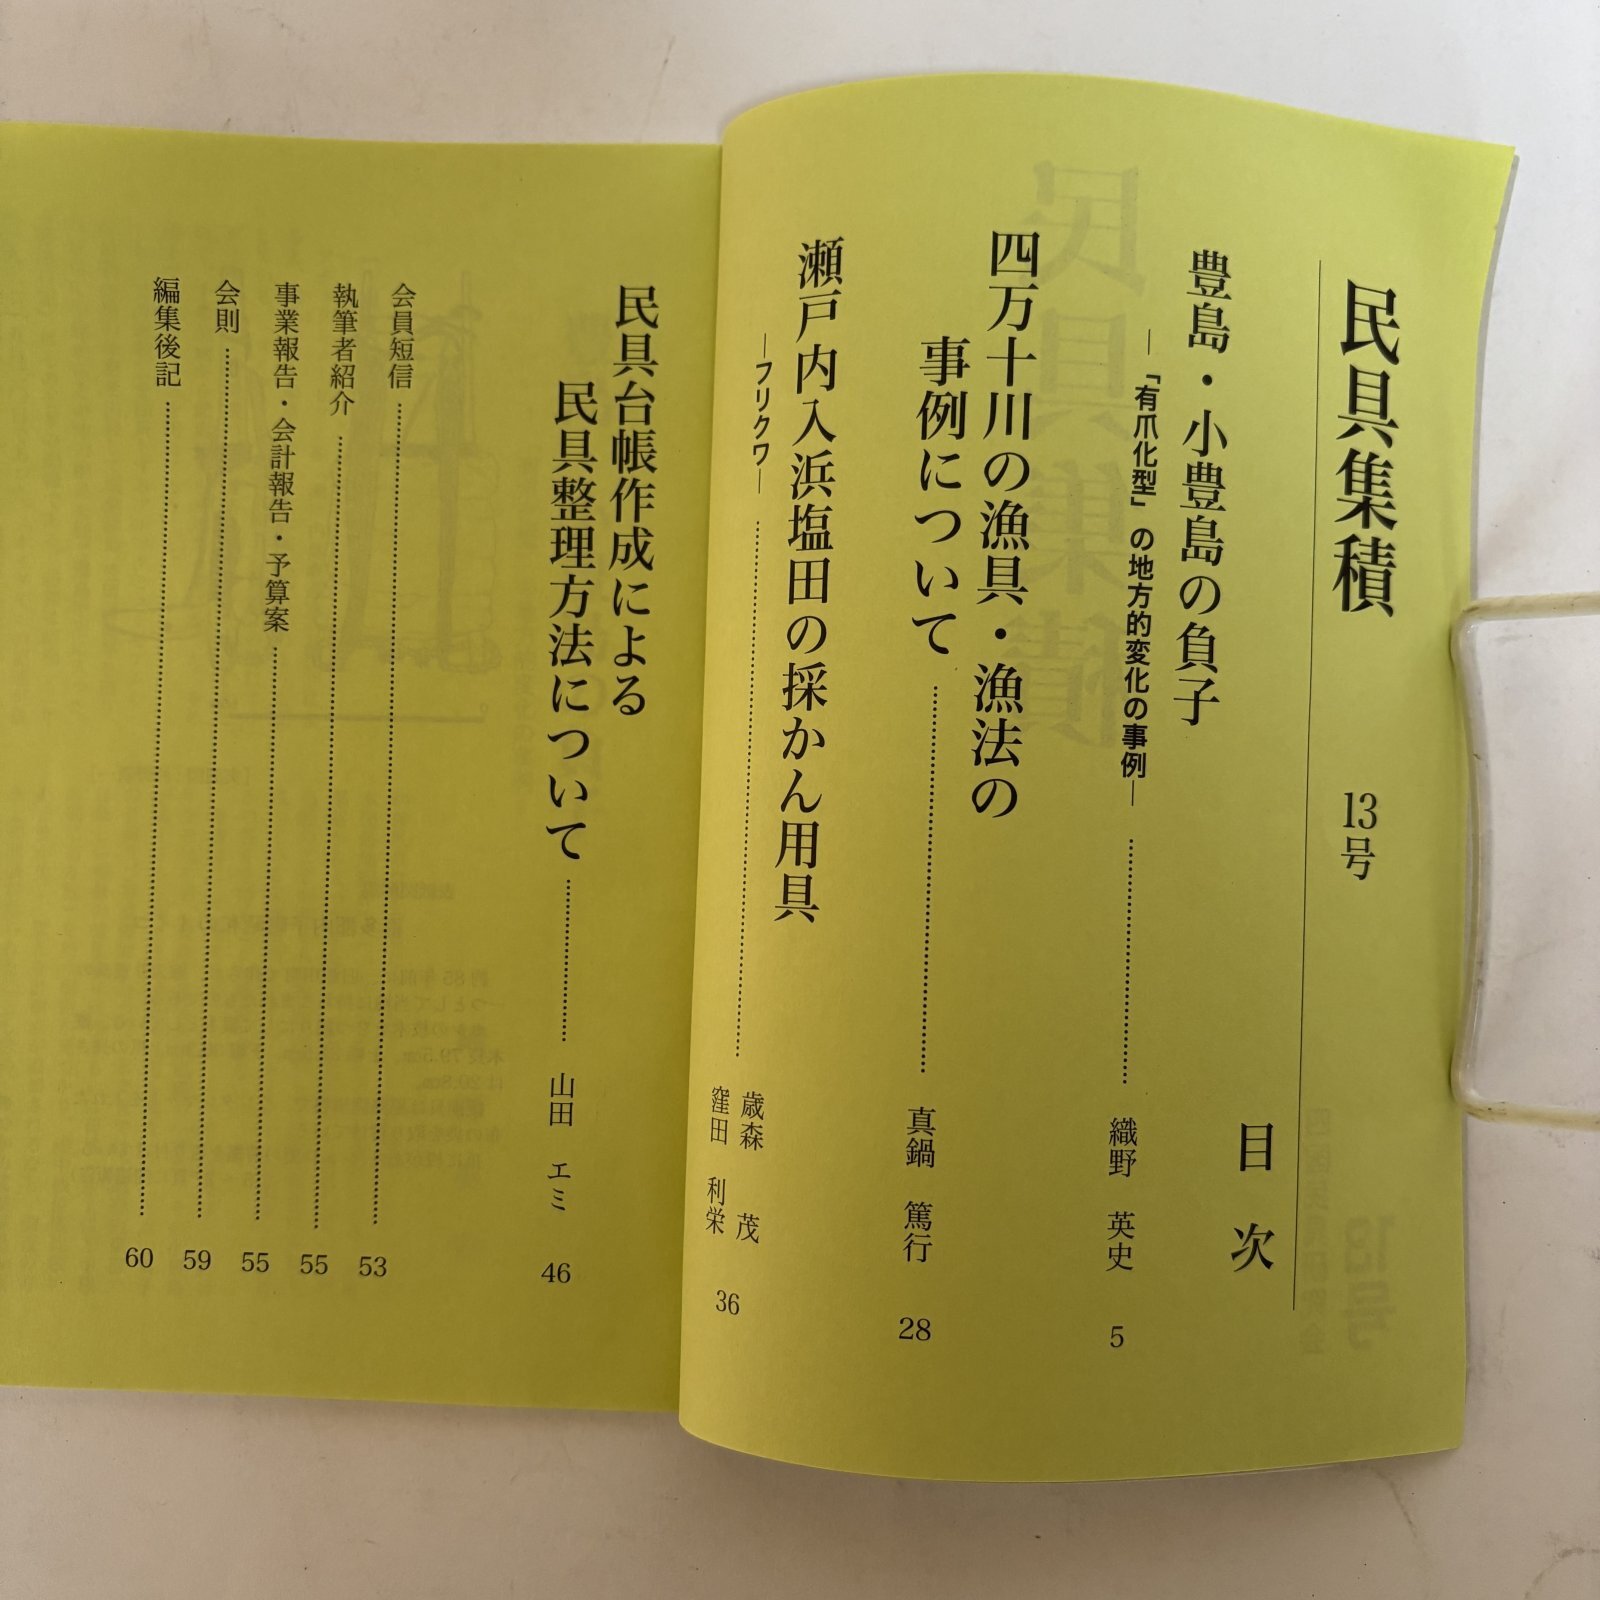 民具集積 13号
目次
豊島・小豊島の負子
―「有爪化型」の地方的変化の事例― 織野 英史 5
四万十川の漁具・漁法の
事例について 真鍋 篤行 28
瀬戸内入浜塩田の採かん用具
―フリクワ― 歳森 茂
窪田 利栄 36
民具台帳作成による
民具整理方法について 山田 エミ 46
会員短信 53
執筆者紹介 55
事業報告・会計報告・予算案 55
会則 59
編集後記 60